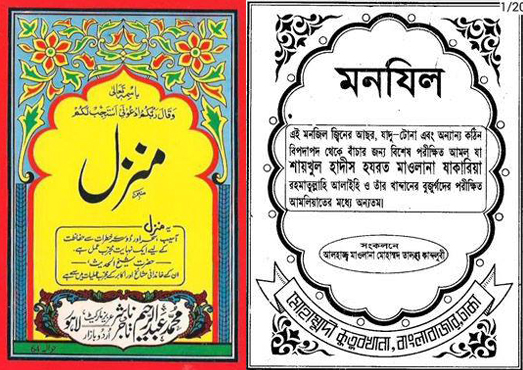 باسمہ تعالیٰ
وقال ربکم ادعونی استجب لکم
منزل
یہ منزل
آسیب، سحر اور دوسرے خطرات سے حفاظت
کے لیے ایک نہایت مجرب عمل ہے
حضرت شیخ الحدیث
محمد عبد الرحیم تاجر
اردو بازار لاہور
1/20
মনযিল
এই মনজিল জ্বিনের আছর, যাদু-টোনা এবং অন্যান্য কঠিন
বিপদাপদ থেকে বাঁচার জন্য বিশেষ পরীক্ষিত আমল যা
শায়খুল হাদীস হযরত মাওলানা যাকারিয়া
রহমাতুল্লাহি আলাইহি ও তাঁর খান্দানের বুজুর্গদের পরীক্ষিত
আমলিয়াতের মধ্যে অন্যতম।
সংকলনে
আলহাজ্ব মাওলানা মোহাম্মদ তালহা কান্দলুবী
মোহাম্মদী কুতুবখানা, বাংলাবাজার, ঢাকা